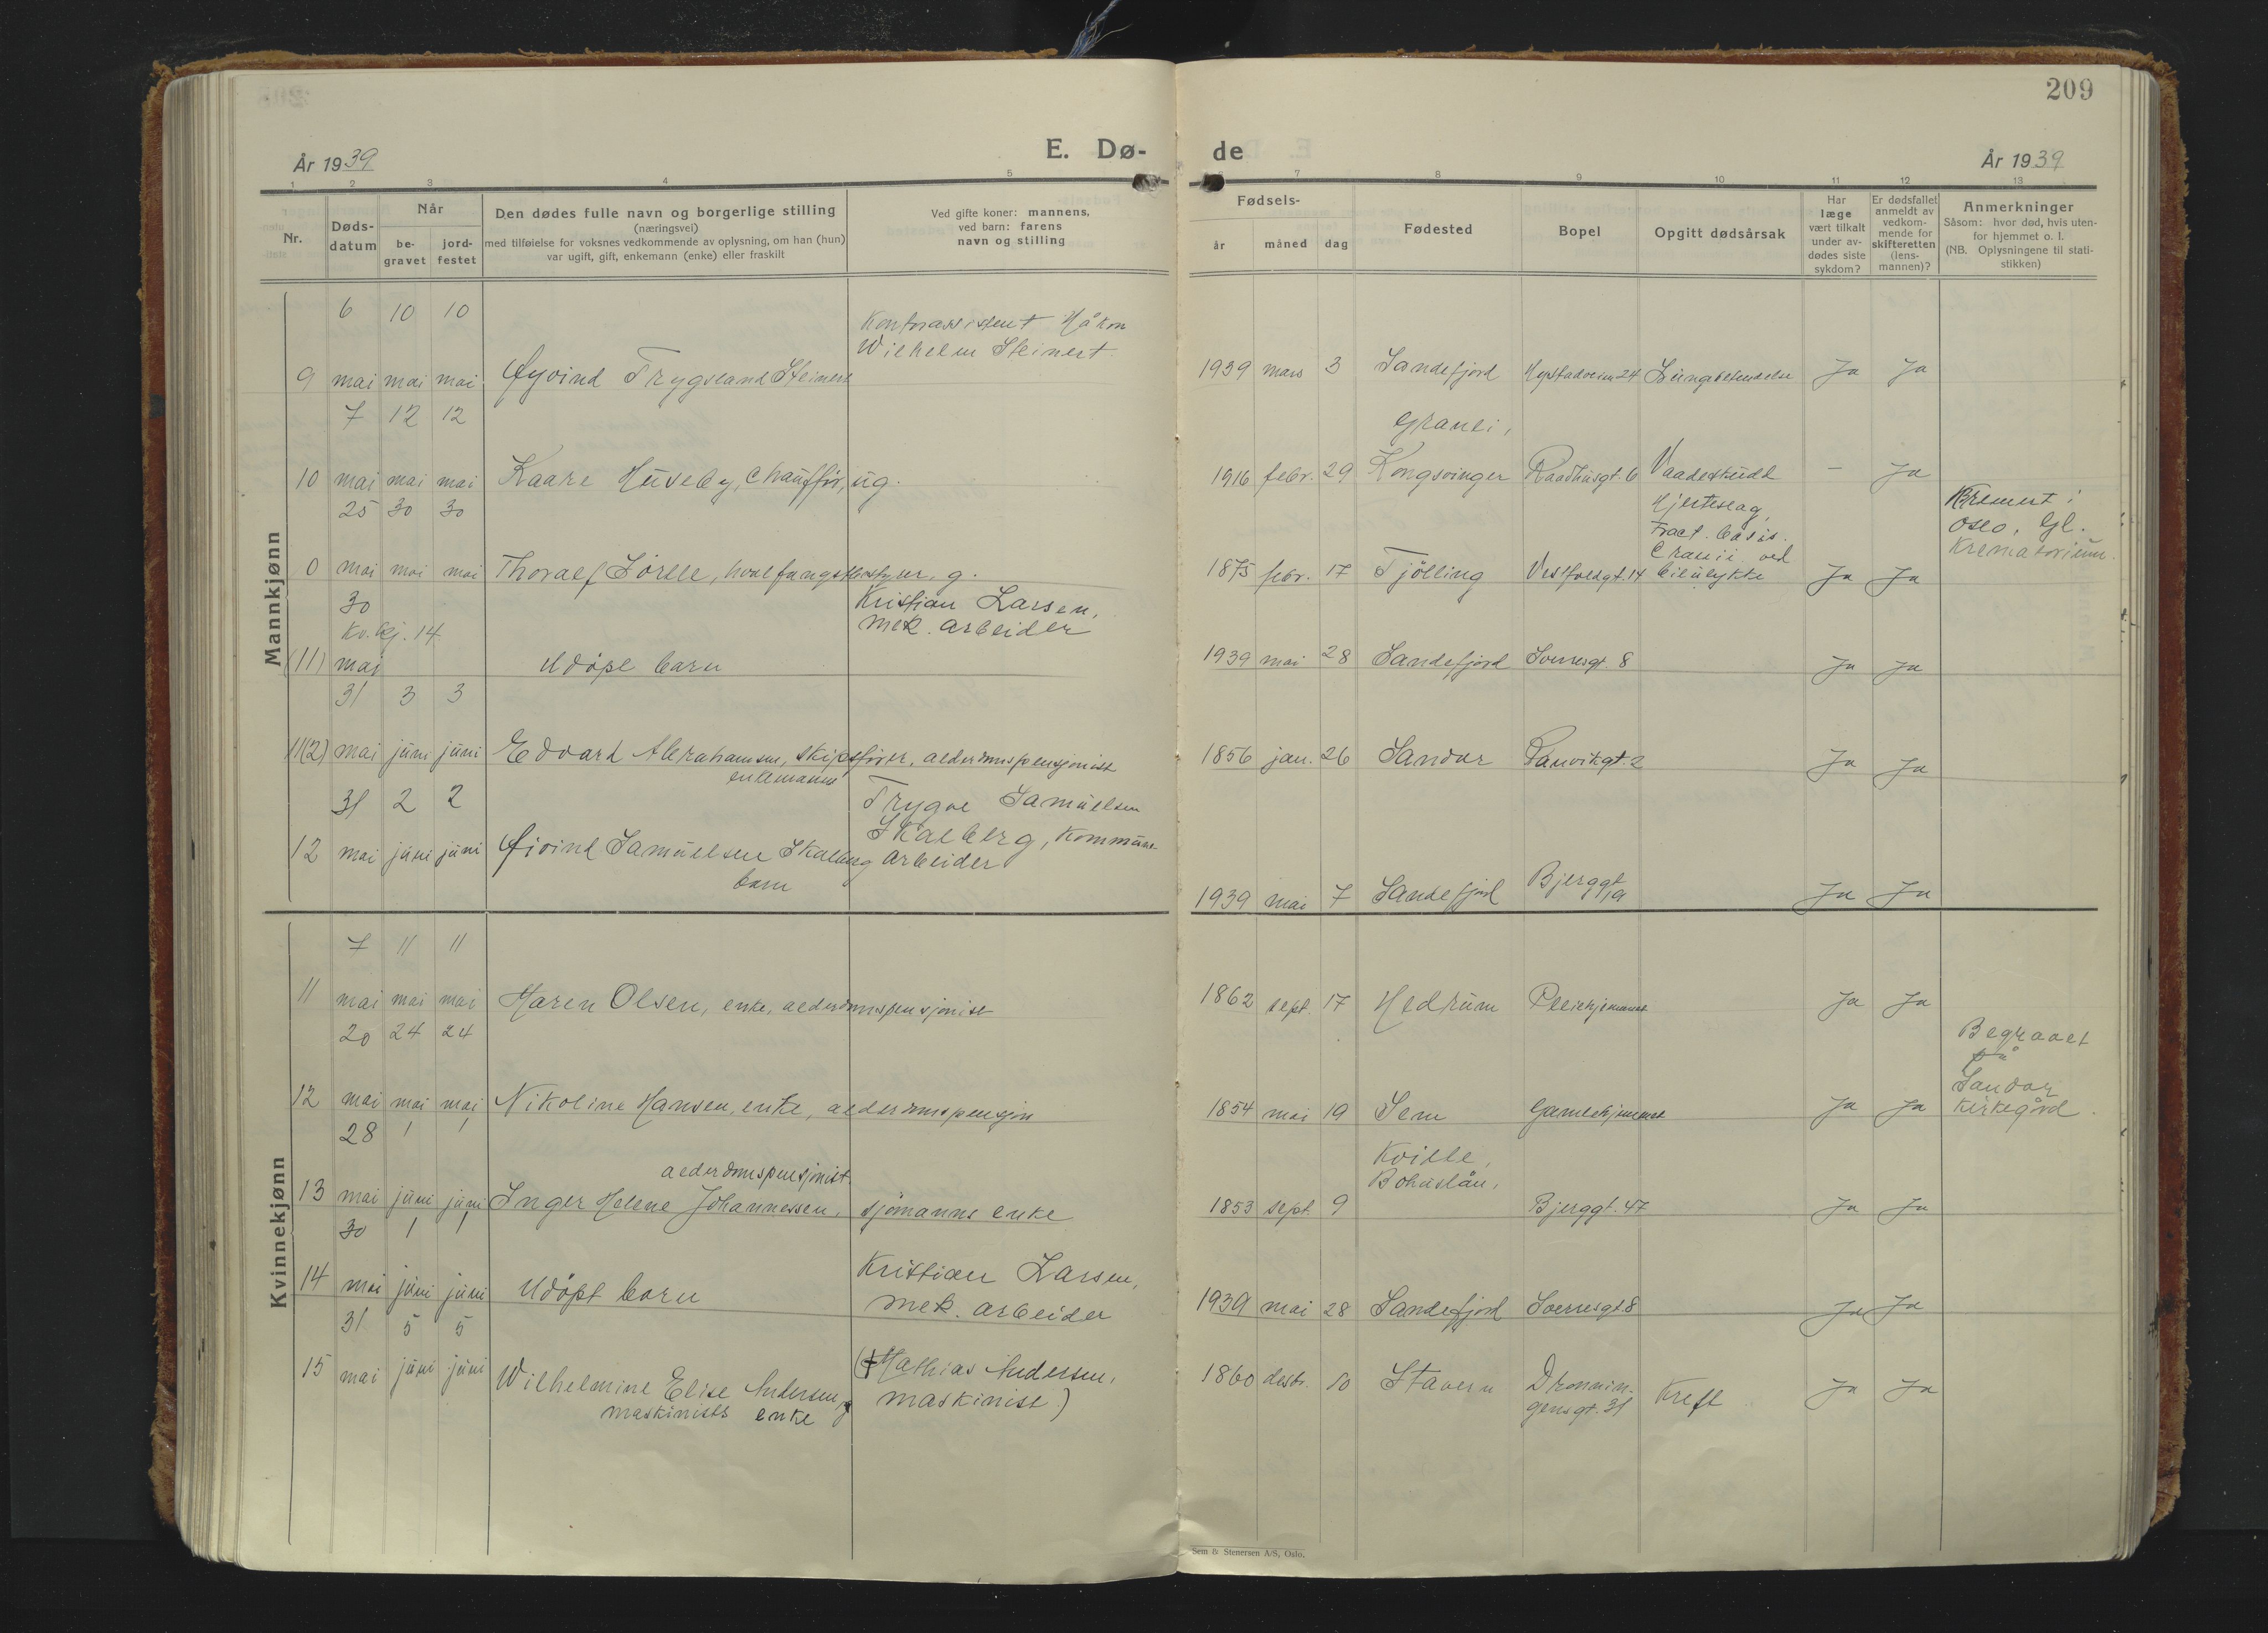 209
E. Dø-
de
År 1939
År 1939
1 2 3 4 5
7 8 9 10 11 12 13
Nr.
Døds-
datum
Når
be-
gravet
jord-
festet
Den dødes fulle navn og borgerlige stilling
(næringsvei)
med tilføielse for voksnes vedkommende av oplysning, om han (hun)
var ugift, gift, enkemann (enke) eller fraskilt
Ved gifte koner: mannens,
ved barn: farens
navn og stilling
Fødsels-
år måned dag
Fødested
Bopel
Opgitt dødsårsak
Har
læge
vært tilkalt
under av-
dødes siste
sykdom?
Er dødsfallet
anmeldt av
vedkom-
mende for
skifteretten
(lens-
mannen)?
Anmerkninger
Såsom: hvor død, hvis uten-
for hjemmet o. l.
(NB. Oplysningene til stati-
stikken)
Mannkjønn
6 10 10
Kontorassistent Håkon
Wilhelm Steinert
9 mai mai mai Øyvind Trygsland Steinert
1939 mars 3 Sandefjord Hystadveien 24 Lungebetendelse Ja Ja
7 12 12
Granli,
10 mai mai mai Kaare Huseby, Chauffør, ug.
1916 febr. 29 Kongsvinger Raadhusgt. 6 Vaadeskudd - Ja
25 30 30
Hjerteslag,
Fract. basis.
Cranii ved
Kremert i
Oslo, Gl.
Krematorium.
0 mai mai mai Thoralf Sørlle, hvalfangstbestyrer, g.
1875 febr. 17 Tjölling Vestfoldgt. 14 bilulykke Ja Ja
30
Kv. kj. 14
Kristian Larsen,
mek. arbeider
(11) mai Udøpt barn
1939 mai 28 Sandefjord Sverresgt. 8 Ja Ja
31 3 3
11(2) mai juni juni Edvard Abrahamsen, skipsfører, alderdomspensjonist
enkemann
1856 jan. 26 Sandar Lauvikgt. 2 Ja Ja
31 2 2
Trygve Samuelsen
Skalberg, Kommune
arbeider
12 mai juni juni Øivind Samuelsen Skalberg
barn
1939 mai 7 Sandefjord Bjerggt.
Ja Ja
Kvinnekjønn
7 11 11
11 mai mai mai Maren Olsen, enke, alderdomspensjonist
1862 sept. 17 Hedrum Pleiehjemmet Ja Ja
20 24 24
Begravet
på
Sandar
kirkegård.
12 mai mai mai Nikoline Hansen, enke, alderdomspensjon
1854 mai 19 Sem Gamlehjemmet Ja Ja
28 1 1
alderdomspensjonist
Kville,
Bohuslän,
13 mai juni juni Inger Helene Johannessen, sjömanns enke
1853 sept. 9 Bjerggt. 47 Ja Ja
30 1 1
14 mai juni juni Udøpt barn
Kristian Larsen,
mek. arbeider
1939 mai 28 Sandefjord Sverresgt 8 Ja Ja
31 5 5
15 mai juni juni Wilhelmine Elise Andersen,
maskinists enke
(† Mathias Andersen,
maskinist)
1860 desbr. 10 Stavern Dronnin-
gensgt. 31 Kreft Ja Ja
Sem & Stenersen A/S, Oslo.